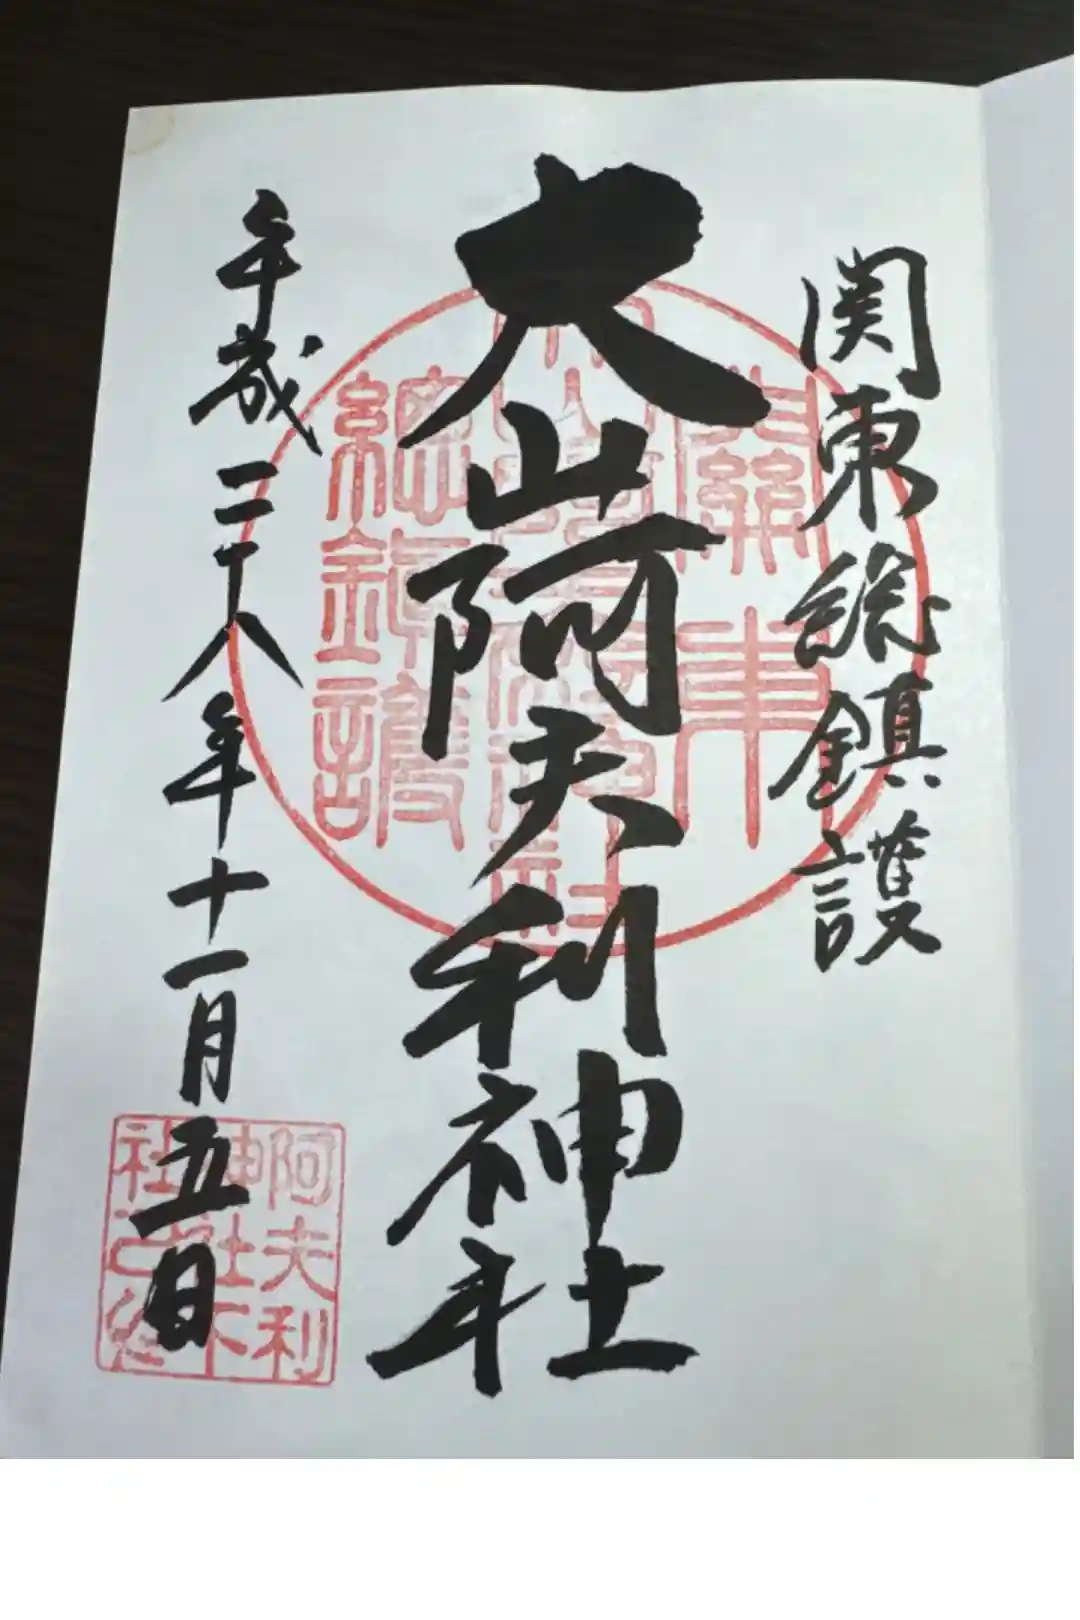 関東総鎮護
大山阿夫利神社
平成二十八年十一月五日
關東
總鎮護
阿夫利
神社下
社